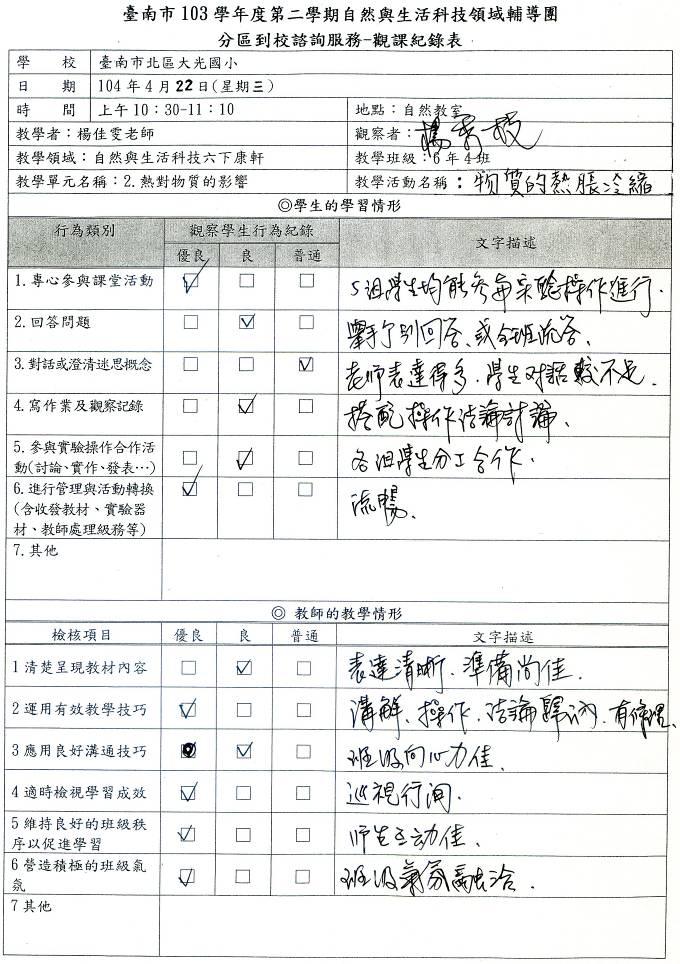 臺南市 103 學年度第二學期自然與生活科技領域輔導團
分區到校諮詢服務-觀課紀錄表
學 校 臺南市北區大光國小
日 期 104 年 4 月 22 日(星期三)
時 間 上午 10：30-11：10 地點：自然教室
教學者：楊佳雯老師 觀察者：楊秀枝
教學領域：自然與生活科技六下康軒 教學班級：6 年 4 班
教學單元名稱：2.熱對物質的影響 教學活動名稱：物質的熱脹冷縮
◎學生的學習情形
行為類別 觀察學生行為紀錄 文字描述
優良 良 普通
1.專心參與課堂活動 ☑ □ □ 5組學生均能參與聆聽操作進行.
2.回答問題 □ ☑ □ 舉手個別回答、或全班流答、
3.對話或澄清迷思概念 □ □ ☑ 老師表達得多，學生對話較不足.
4.寫作業及觀察記錄 □ ☑ □ 搭配操作結論討論.
5.參與實驗操作合作活 □ ☑ □ 各組學生分工合作.
動(討論、實作、發表…)
6.進行管理與活動轉換 ☑ □ □ 流暢.
(含收發教材、實驗器
材、教師處理級務等)
7.其他
◎ 教師的教學情形
檢核項目 優良 良 普通 文字描述
1 清楚呈現教材內容 □ ☑ □ 表達清晰、準備尚佳.
2 運用有效教學技巧 ☑ □ □ 講解、操作、結論歸納、有條理.
3 應用良好溝通技巧 ☑ □ 班級向心力佳.
4 適時檢視學習成效 ☑ □ □ 巡視行間.
5 維持良好的班級秩 ☑ □ □ 師生互動佳.
序以促進學習
6 營造積極的班級氣 ☑ □ □ 班級氣氛融洽.
氛
7 其他